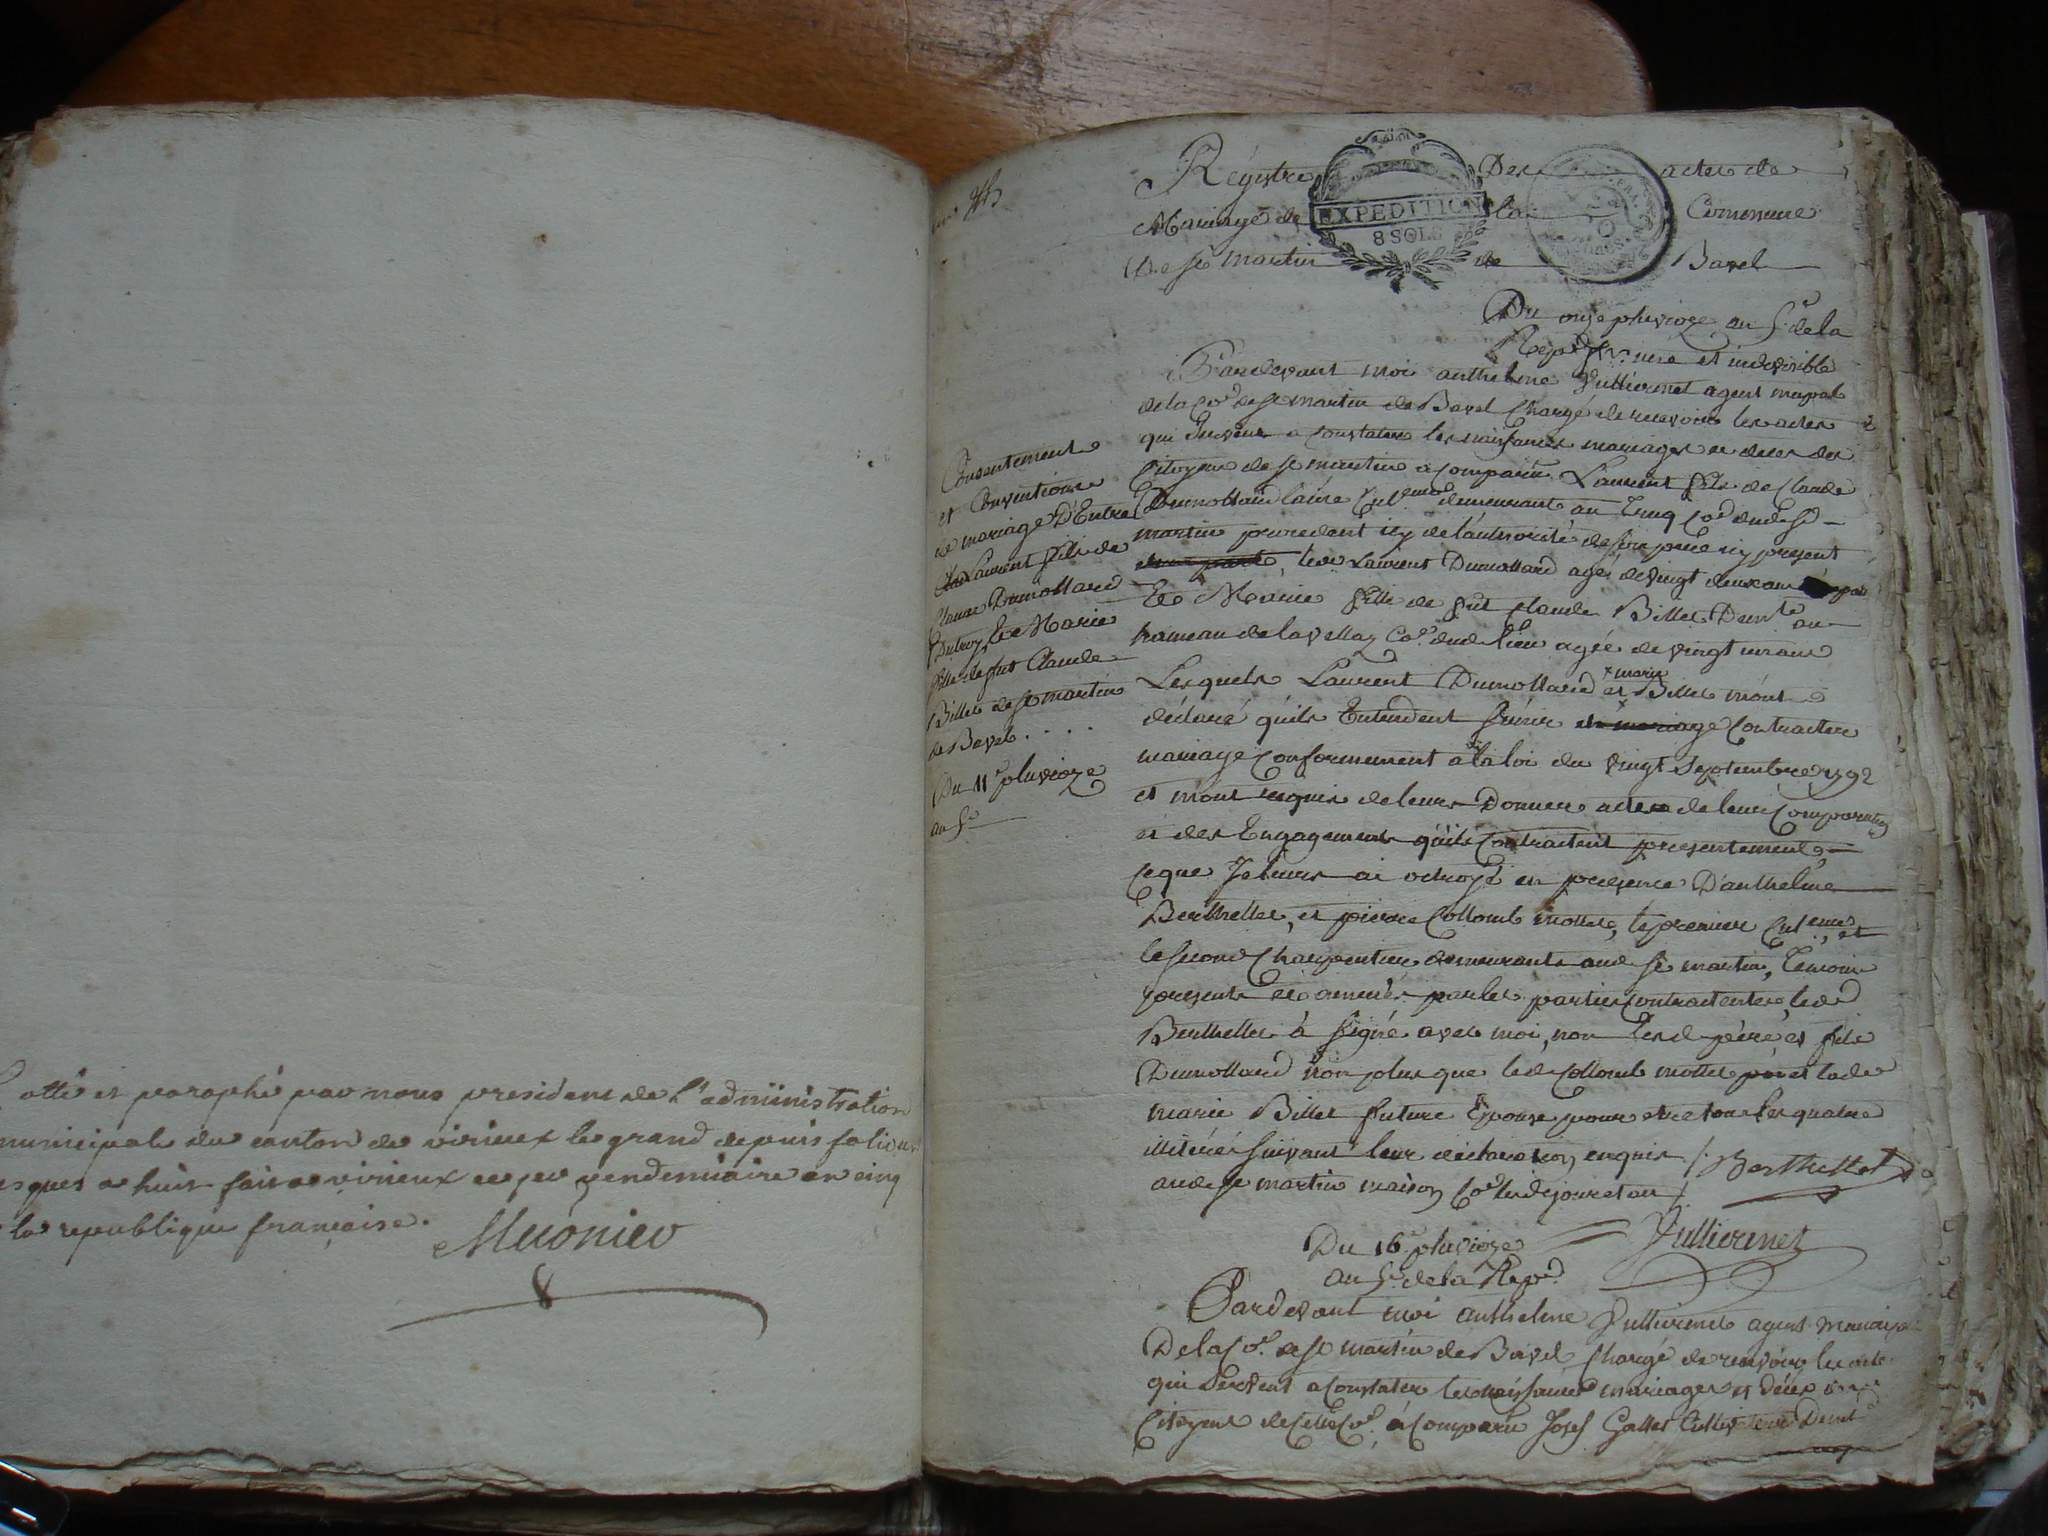 Cotté et paraphé par nous president de l'administration
municipale du canton de virieux le grand depuis folio un
jusques a huit fait a virieux ce jer vendemiaire an cinq
la republique française.
Meuonier
Régistre Des actes de
Mariage de la Commune
De st martin de Bavel
EXPEDITION
8 SOLS
Du onze pluvioze an 5e de la
Repe fr. une et indivisible
Consentement
et Conventions
de mariage D'Entre
Laurent fils de
Claude Dumollard
Dutruy Et Marie
fille de fut Claude
Billet de st martin
de Bavel . . . .
Du 11e pluvioze
an 5e
Pardevant moi anthelme Jullierinet agent mupal
de la Co.e de st martin de Bavel Chargé de recevoir les actes
qui Servent a Constater les naissances mariages et deces des
Citoyens de st martin a Comparu Laurent fils de Claude
Dumollard laine demeurant au Co.e dud st
martin procedant icy de l'authorité de son pere icy present
led Laurent Dumollard agé de vingt deux ans
Et Marie fille de fut Claude Billet Demte au
hameau de lavellaz Co.e dud lieu agée de vingt un ans
Lesquels Laurent Dumollard et marie Billet m'ont
déclaré qu'ils Entendent s'unir en mariage Contracter
mariage Conformement à la loi du vingt Septembre 1792
et m'ont requis de leurs Donner acte de leur Comparution
et des Engagements qu'ils Contractent presentement,
Ce que Je leurs ai octroyé en presence D'anthelme
Berthellet, et pierre Collomb mottet, le premier et
le second Charpentier demeurants aud st martin, temoins
presents et amenés par les parties Contractentes, led
Berthellet à signé avec moi, non Lesd pére et fils
Dumollard non plus que led Collomb mottet et lade
marie Billet future Epouse pour etre tous les quatre
illitérés suivant leur déclaration enquis /. Berthellet
aud st martin maison Co.e lesd jour et an /.
Jullierinet
Du 16e pluvioze
an 5e de la Repe.
Pardevant moi anthelme Jullierinet agent
De la Co.e de st martin de Bavel Chargé de recevoir les actes
qui Servent a Constater les naissances mariages et déces
Citoyens de Cette Co.e, à Comparu Josef Gallet Cultivateur